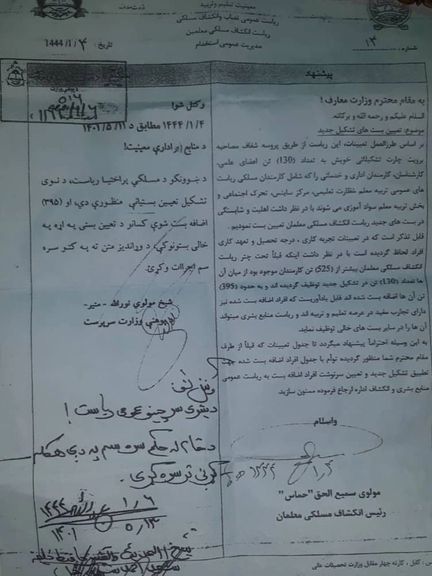 معینیت تعلیم و تربیه
ریاست عمومی نصاب و انکشاف مسلکی
ریاست انکشاف مسلکی معلمین
مدیریت عمومی استخدام
تاریخ: ۴ /1/ 1444
شماره: ۱۳
پیشنهاد
به مقام محترم وزارت معارف!
السلام علیکم و رحمة الله و برکاته.
موضوع: تعیین بست های تشکیل جدید
بر اساس طرزالعمل تعیینات، این ریاست از طریق پروسه شفاف مصاحبه
برویت چارت تشکیلاتی خویش به تعداد (130) تن اعضای علمی،
کارشناسان، کارمندان اداری و خدماتی را که شامل کارمندان مسلکی ریاست
های عمومی تربیه معلم، نظارت تعلیمی، مرکز ساینس، تحرک اجتماعی و
بخش تربیه معلم سواد آموزی می شوند با در نظر داشت اهلیت و شایستگی
در بست های جدید ریاست انکشاف مسلکی معلمان تعیین بست نمودیم.
قابل تذکر است که در تعیینات تجربه کاری، درجه تحصیل و تعهد کاری
افراد لحاظ گردیده است با در نظر داشت اینکه قبلاً تحت چتر ریاست
انکشاف مسلکی معلمان بیشتر از (525) تن کارمندان موجود بود از میان آن
ها تعداد (130) تن در تشکیل جدید توظیف گردیده اند و به حدود (395)
تن آن ها اضافه بست شده اند قابل یادآوریست که افراد اضافه بست شده نیز
دارای تجارب مفید در عرصه تعلیم و تربیه اند و ریاست منابع بشری میتواند
آن ها را در سایر بست های خالی توظیف نماید.
به این وسیله احتراماً پیشنهاد میگردد تا جدول تعیینات که قبلاً از طرف
مقام محترم شما منظور گردیده توأم با جدول افراد اضافه بست شده جهت
تطبیق تشکیل جدید و تعیین سرنوشت افراد اضافه بست به ریاست عمومی
منابع بشری و انکشاف اداره ارجاع فرموده ممنون سازید.
والسلام
مولوی سمیع الحق "حماس"
رئیس انکشاف مسلکی معلمان
وکتل شو!
۱۴۴۴/۱/۴ مطابق د ۱۴۰۱/۵/۱۱
د منابع او اداري معینیت!
د ښوونکو د مسلکي پراختیا ریاست، د نوی
تشکیل تعیین بستیاني منظوري دي، او (۳۹۵)
اضافه بست شوي کسانو د تعیین بستی په اړه په
خالي بستونو کې، د وړاندیز متن ته په کتو سره
سم اجراات وکړئ.
شیخ مولوي نورالله «منیر»
د پوهنې وزارت سرپرست
وکتل شو
د بشري سرچینو عمومي ریاست!
د مقام له حکم سره سم په دې هکله
کړنې ترسره کړئ.
۱۴۴۴ /۱/۶
۱۴۰۱ /۵/۱۳